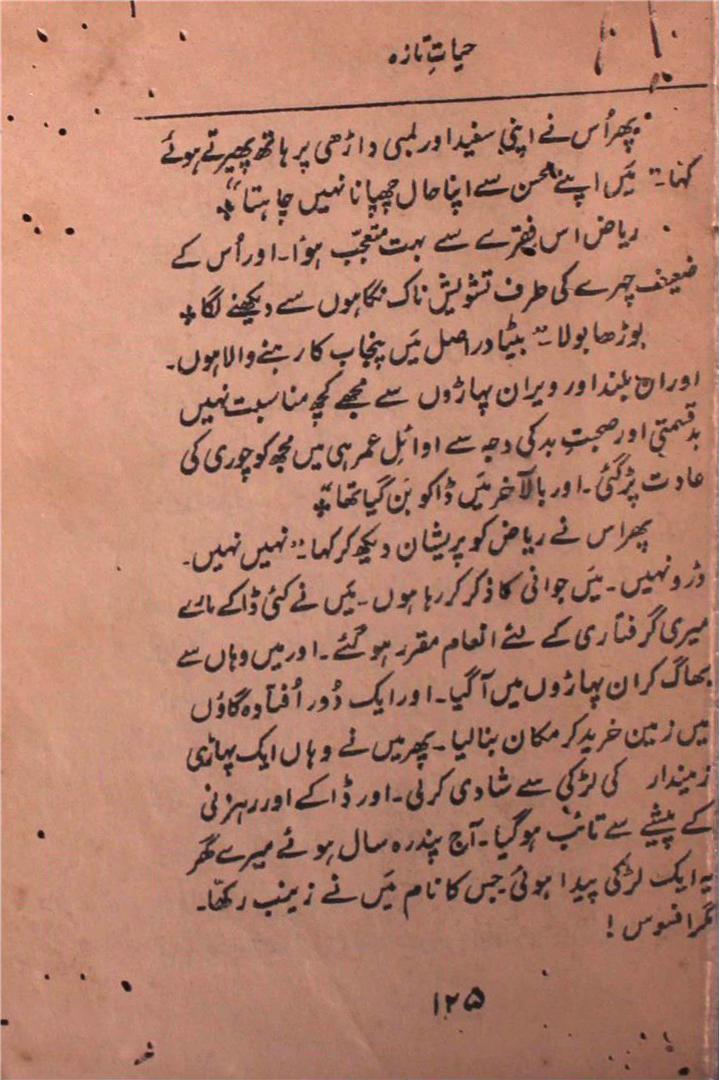 حیاتِ تازہ
پھر اُس نے اپنی سفید اور لمبی داڑھی پر ہاتھ پھیرتے ہوئے
کہا۔ "میَں اپنے محسن سے اپنا حال چھپانا نہیں چاہتا"٭
ریاض اس فقرے سے بہت متعجّب ہوُا۔ اور اُس کے
ضعیف چہرے کی طرف تشویش ناک نگاہوں سے دیکھنے لگا٭
بوڑھا بولا۔ "بیٹا دراصل میَں پنجاب کا رہنے والا ہوں۔
اور ان بلند اور ویران پہاڑوں سے مجھے کچھ مناسبت نہیں
بدقسمتی اور صحبتِ بد کی وجہ سے اوائلِ عمر ہی میں مجھ کو چوری کی
عادت پڑ گئی۔ اور بالآخر میَں ڈاکو بَن گیا تھا"٭
پھر اس نے ریاض کو پریشان دیکھ کر کہا۔ "نہیں نہیں۔
ڈرو نہیں۔ میَں جوانی کا ذکر کر رہا ہوں۔ میَں نے کئی ڈاکے مارے
میری گرفتاری کے لئے انعام مقرر ہو گئے۔ اور میں وہاں سے
بھاگ کر ان پہاڑوں میں آ گیا۔ اور ایک دُور اُفتادہ گاؤں
میں زمین خرید کر مکان بنا لیا۔ پھر میں نے وہاں ایک پہاڑی
زمیندار کی لڑکی سے شادی کر لی۔ اور ڈاکے اور رہزنی
کے پیشے سے تائب ہو گیا۔ آج پندرہ سال ہوئے میرے گھر
یہ ایک لڑکی پیدا ہوئی جس کا نام میَں نے زینب رکھّا۔
مگر افسوس!
۱۲۵